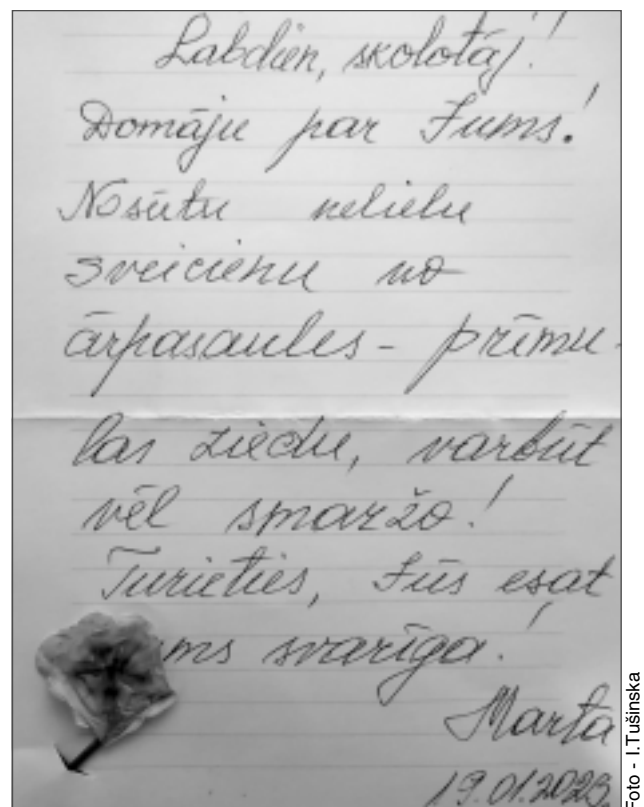 Labdien, skolotāj!
Domāju par Jums!
Nosūtu nelielu
sveicienu no
ārpasaules - prīmu-
las ziedu, varbūt
vēl smaržo!
Turieties, Jūs esat
ms svarīga!
Marta
19.01.2023
Foto - I.Tušinska